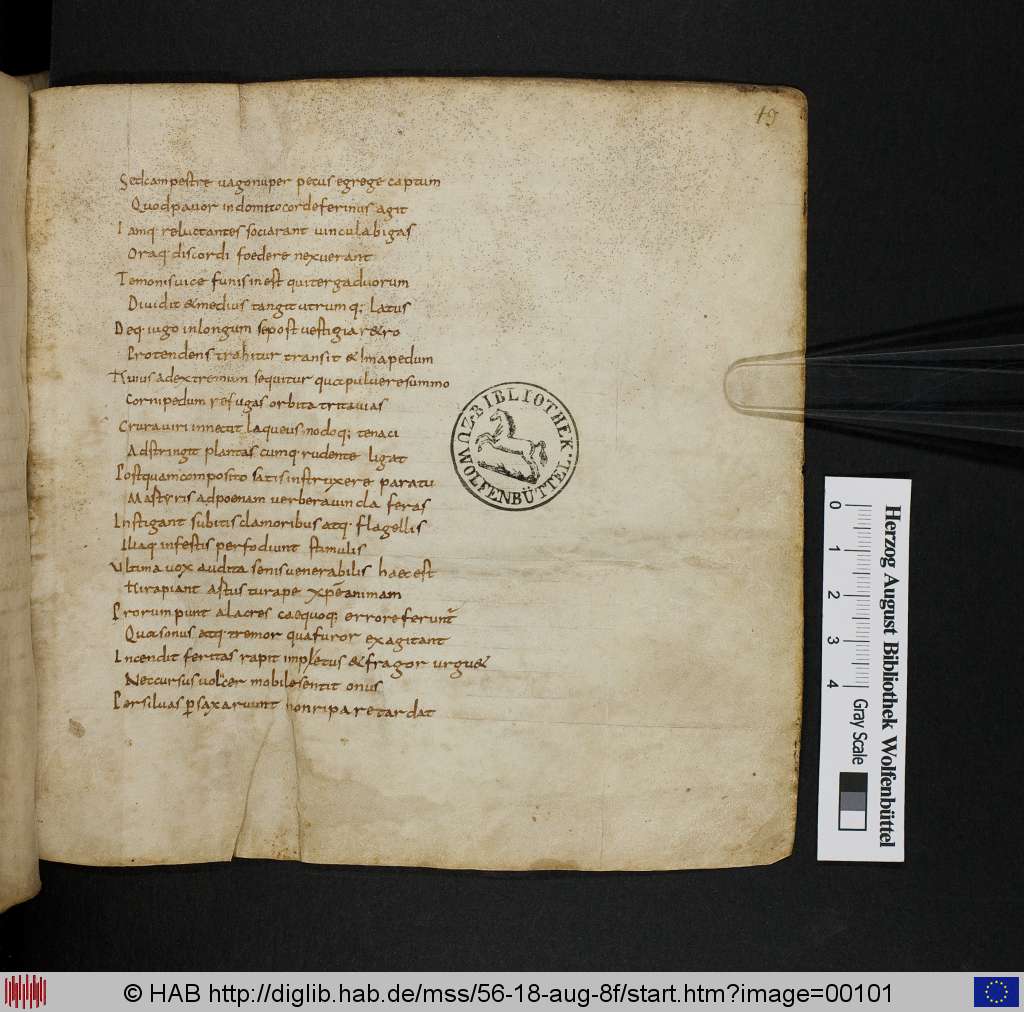 49
Sed campestre vago nuper pecus egrege captum
Quod pavor indomito corde ferinus agit
Iamq· reluctantes sociarant vincula bigas
Oraq· discordi foedere nexuerant
Temonis vice funis inest qui terga duorum
Dividit & medius tangit utrumq; latus
Deq· iugo in longum se post vestigia r&ro
Protendens trahitur transit & Ima pedum
Huius ad extremum sequitur qua pulvere summo
Cornipedum refugas orbita trita vias
Crura viri innectit laqueus nodoq; tenaci
Adstringit plantas cumq· rudente ligat
Postquam composito satis instruxere paratu
Martyris ad poenam verbera vincla feras
Instigant subitis clamoribus atq· flagellis
Iliaq· infestis perfodiunt stimulis
Ultima vox audita senis venerabilis haec est
Hi rapiant astus tu rape xpē animam
Prorumpunt alacres caequoq; errore feruntˀ
Qua sonus atq· tremor qua furor exagitant
Incendit feritas rapit impetus & fragor urgu&
Nec cursus volucer mobile sentit onus
Per silvas p saxa ruunt non ripa retardat
BIBLIOTHEK
ZU
WOLFENBÜTTEL
Herzog August Bibliothek Wolfenbüttel
0 1 2 3 4 Gray Scale
© HAB http://diglib.hab.de/mss/56-18-aug-8f/start.htm?image=00101